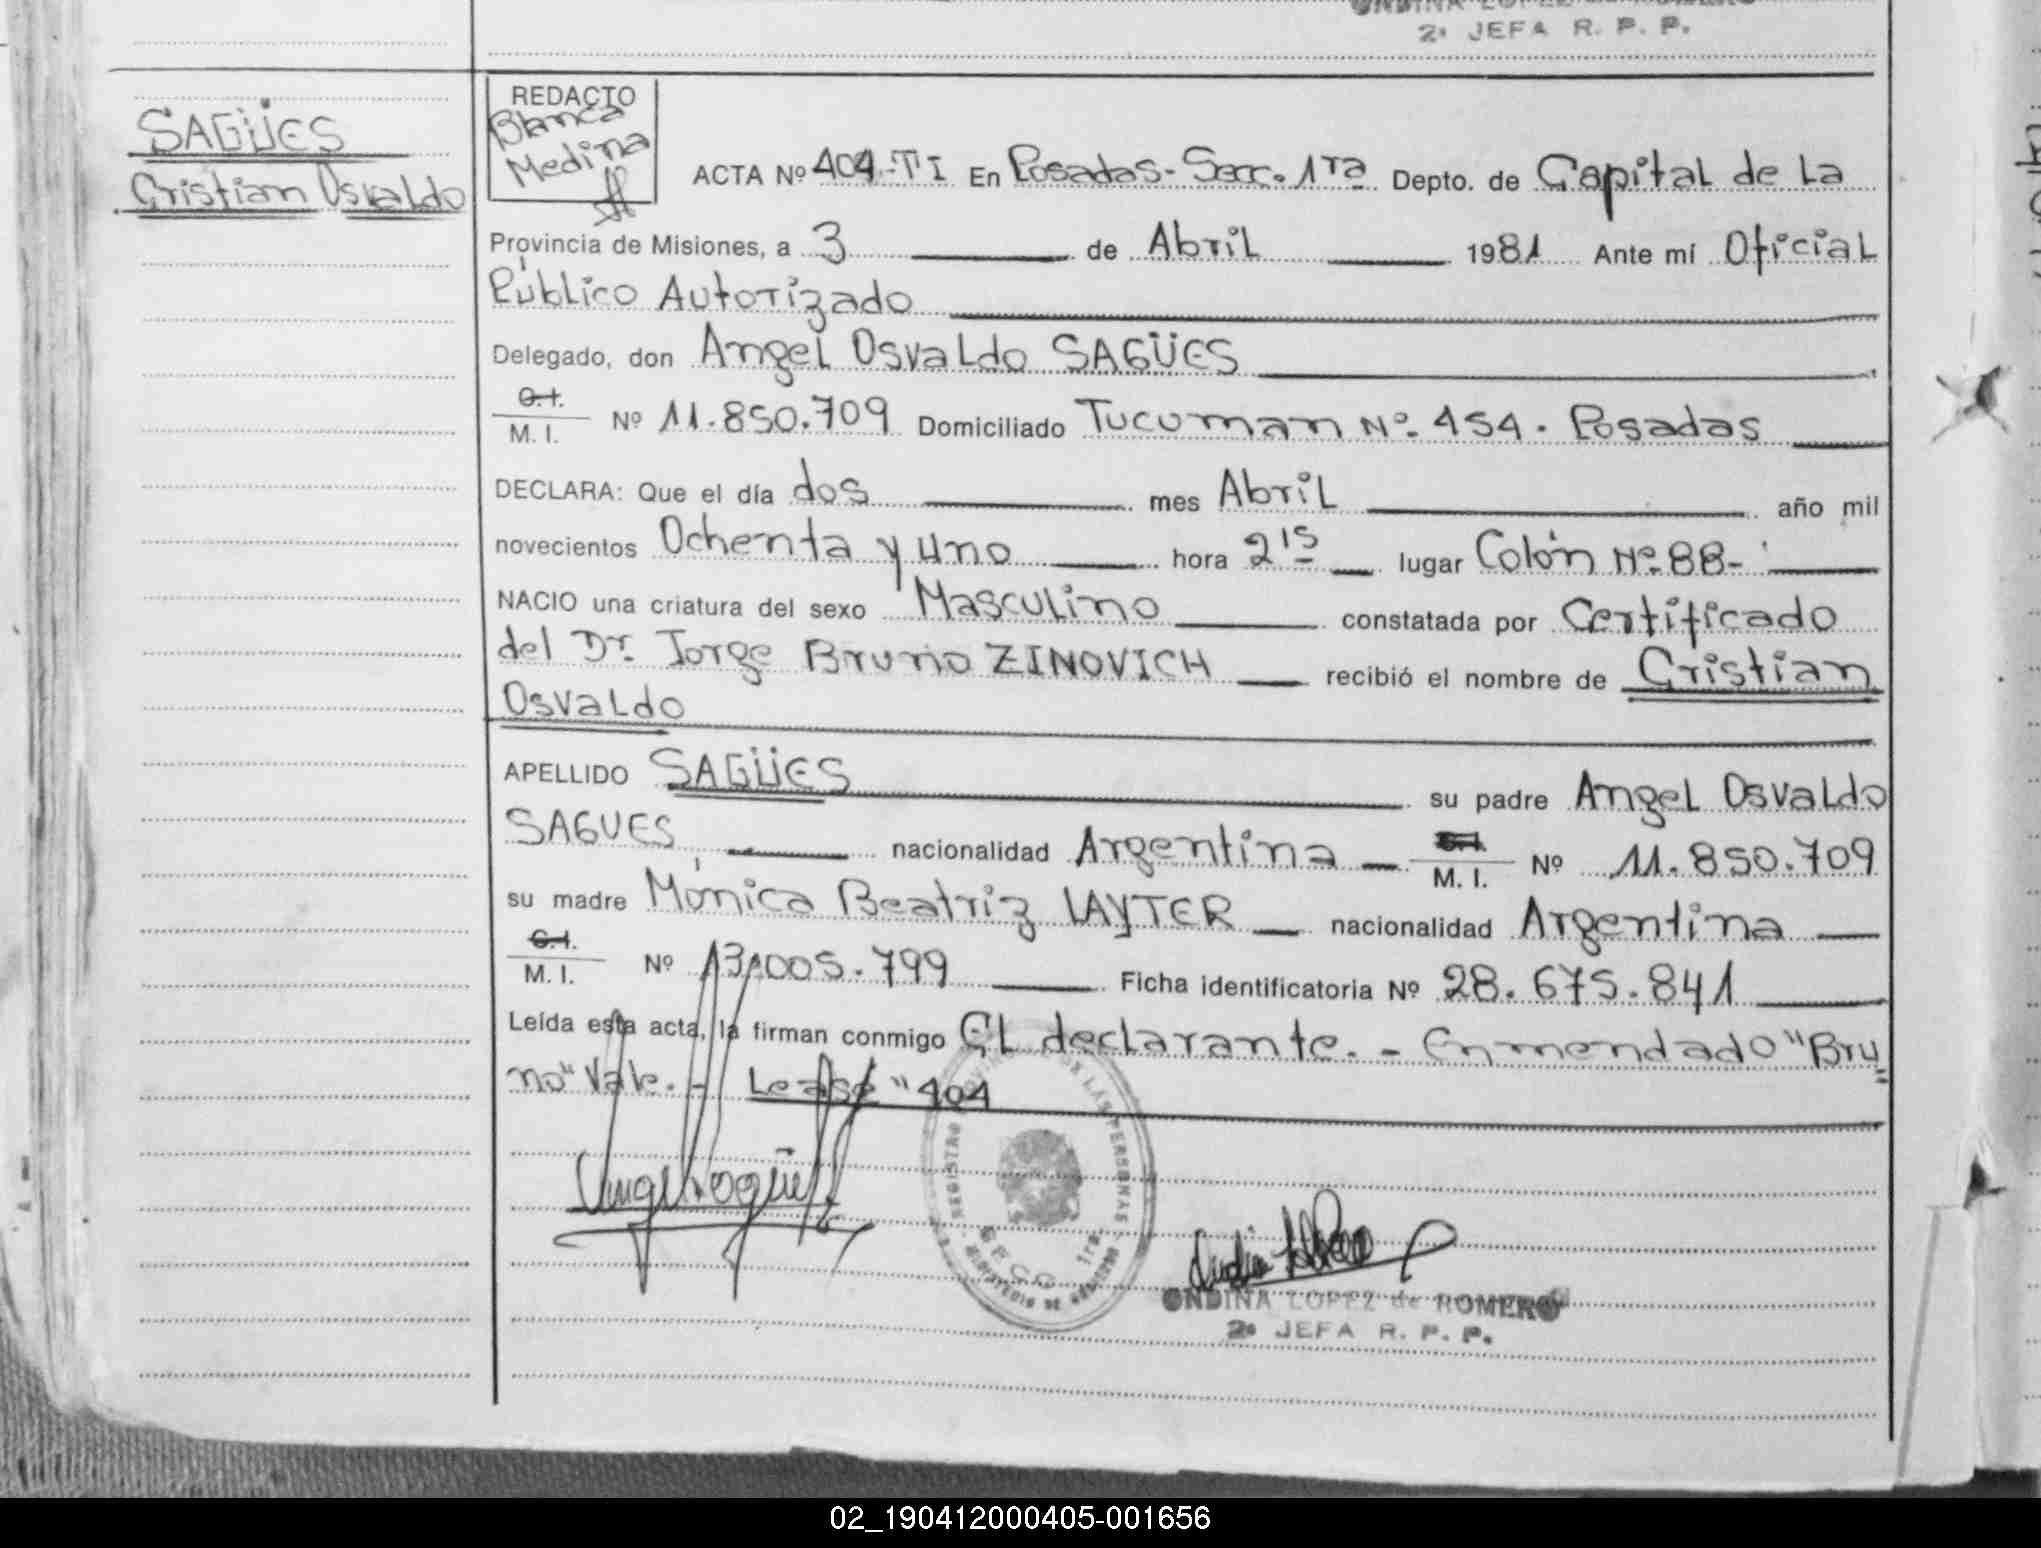 ONDINA LOPEZ de ROMERO
2ª JEFA R. P. P.
SAGÜES
Cristian Osvaldo
REDACTO
Blanca
Medina
ACTA Nº 404.-TI En Posadas-Secc. 1ra Depto. de Capital de La
Provincia de Misiones, a 3 de Abril 1981 Ante mí Oficial
Público Autorizado
Delegado, don Angel Osvaldo SAGÜES
C.I.
M. I. Nº 11.850.709 Domiciliado Tucuman Nº. 454. Posadas
DECLARA: Que el día dos mes Abril año mil
novecientos Ochenta y uno hora 2 15 lugar Colón Nº 88-
NACIO una criatura del sexo Masculino constatada por Certificado
del Dr. Jorge Bruno ZINOVICH recibió el nombre de Cristian
Osvaldo
APELLIDO SAGÜES su padre Angel Osvaldo
SAGUES nacionalidad Argentina C.I. M. I. Nº 11.850.709
su madre Mónica Beatriz LAYTER nacionalidad Argentina
C.I.
M. I. Nº 13.005.799 Ficha identificatoria Nº 28.675.841
Leída esta acta, la firman conmigo El declarante.- Enmendado "Bru
no" Vale.- Lease "404
REGISTRO PROVINCIAL DE LAS PERSONAS
SECC. 1ra.
MINISTERIO DE GOBIERNO
ONDINA LOPEZ de ROMERO
2ª JEFA R. P. P.
02_190412000405-001656